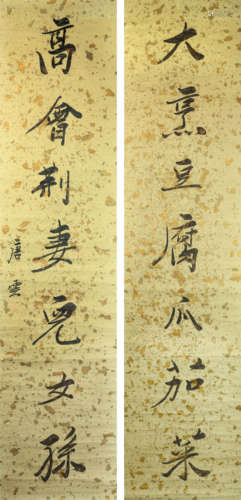 大烹豆腐瓜茄菜
高會荊妻兒女孫
唐雲